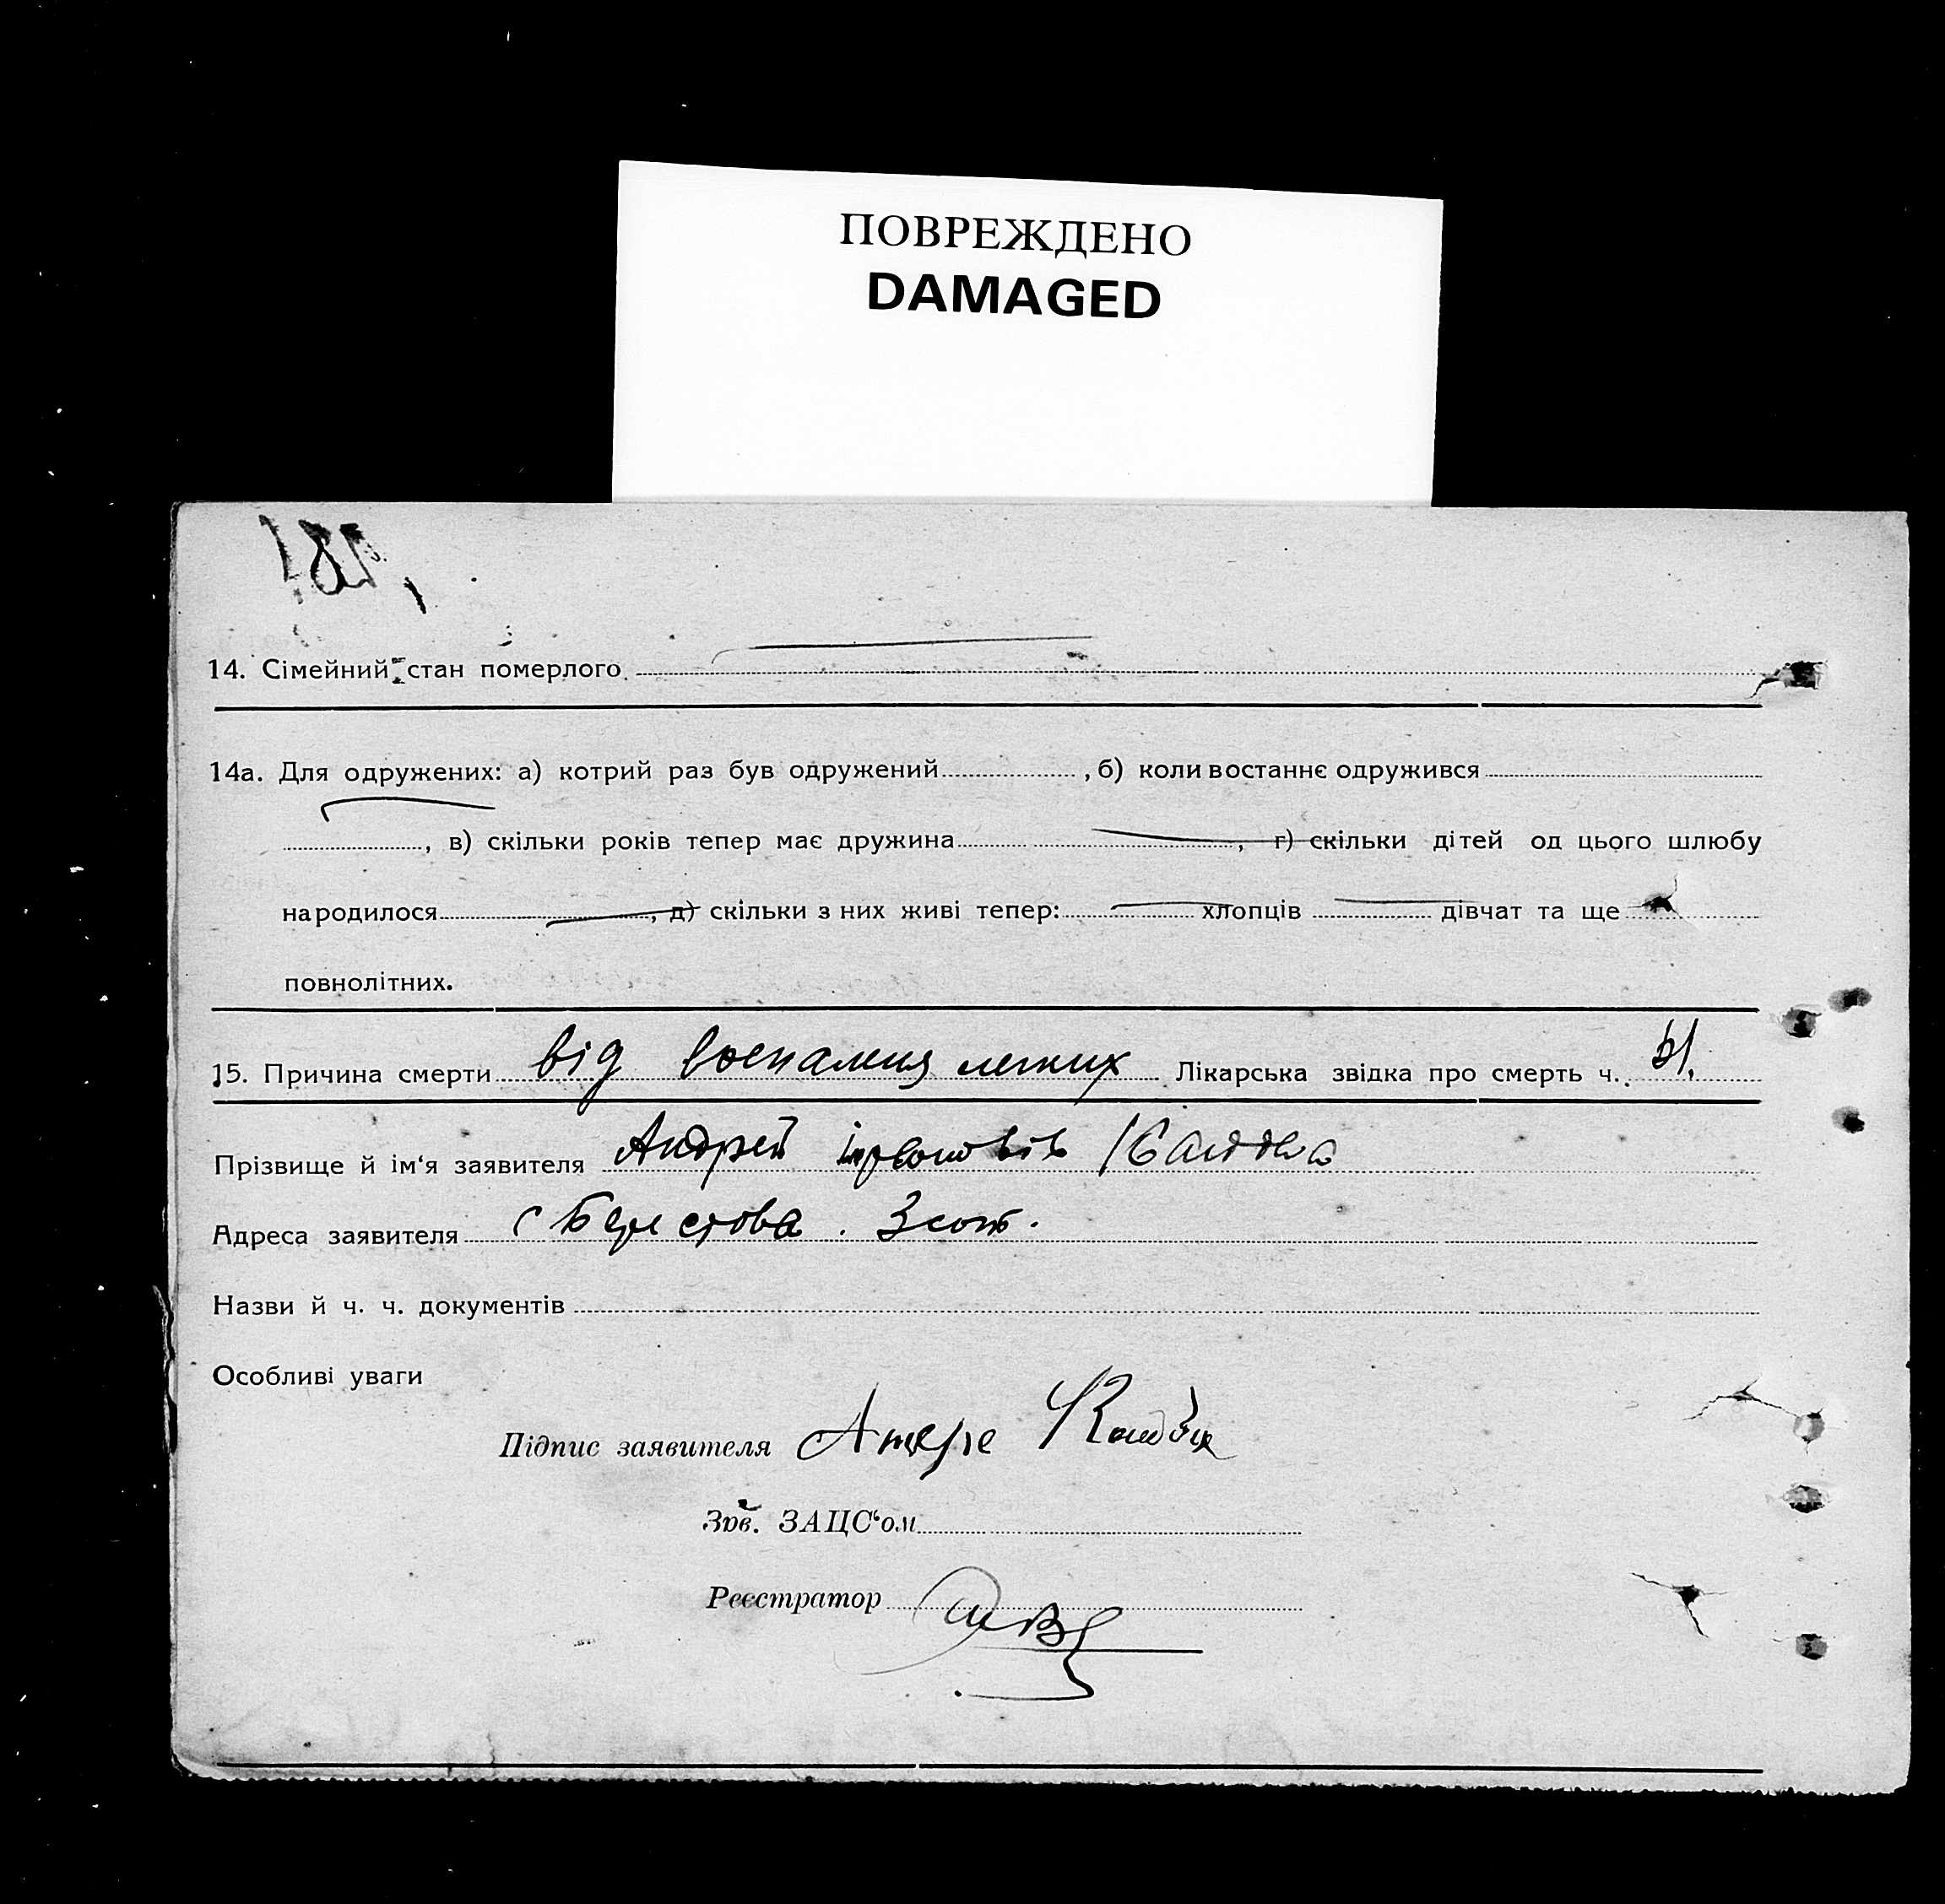 ПОВРЕЖДЕНО
DAMAGED
14. Сімейний стан померлого
14а. Для одружених: а) котрий раз був одружений , б) коли востаннє одружився
, в) скільки років тепер має дружина , г) скільки дітей од цього шлюбу
народилося , д) скільки з них живі тепер: хлопців дівчат та ще
повнолітних.
15. Причина смерти від воспаления легких Лікарська звідка про смерть ч.
Прізвище й ім‘я заявителя Андрей
Адреса заявителя с Берестова .
Назви й ч. ч. документів
Особливі уваги
Підпис заявителя
Зав. ЗАЦС‘ом
Реєстратор